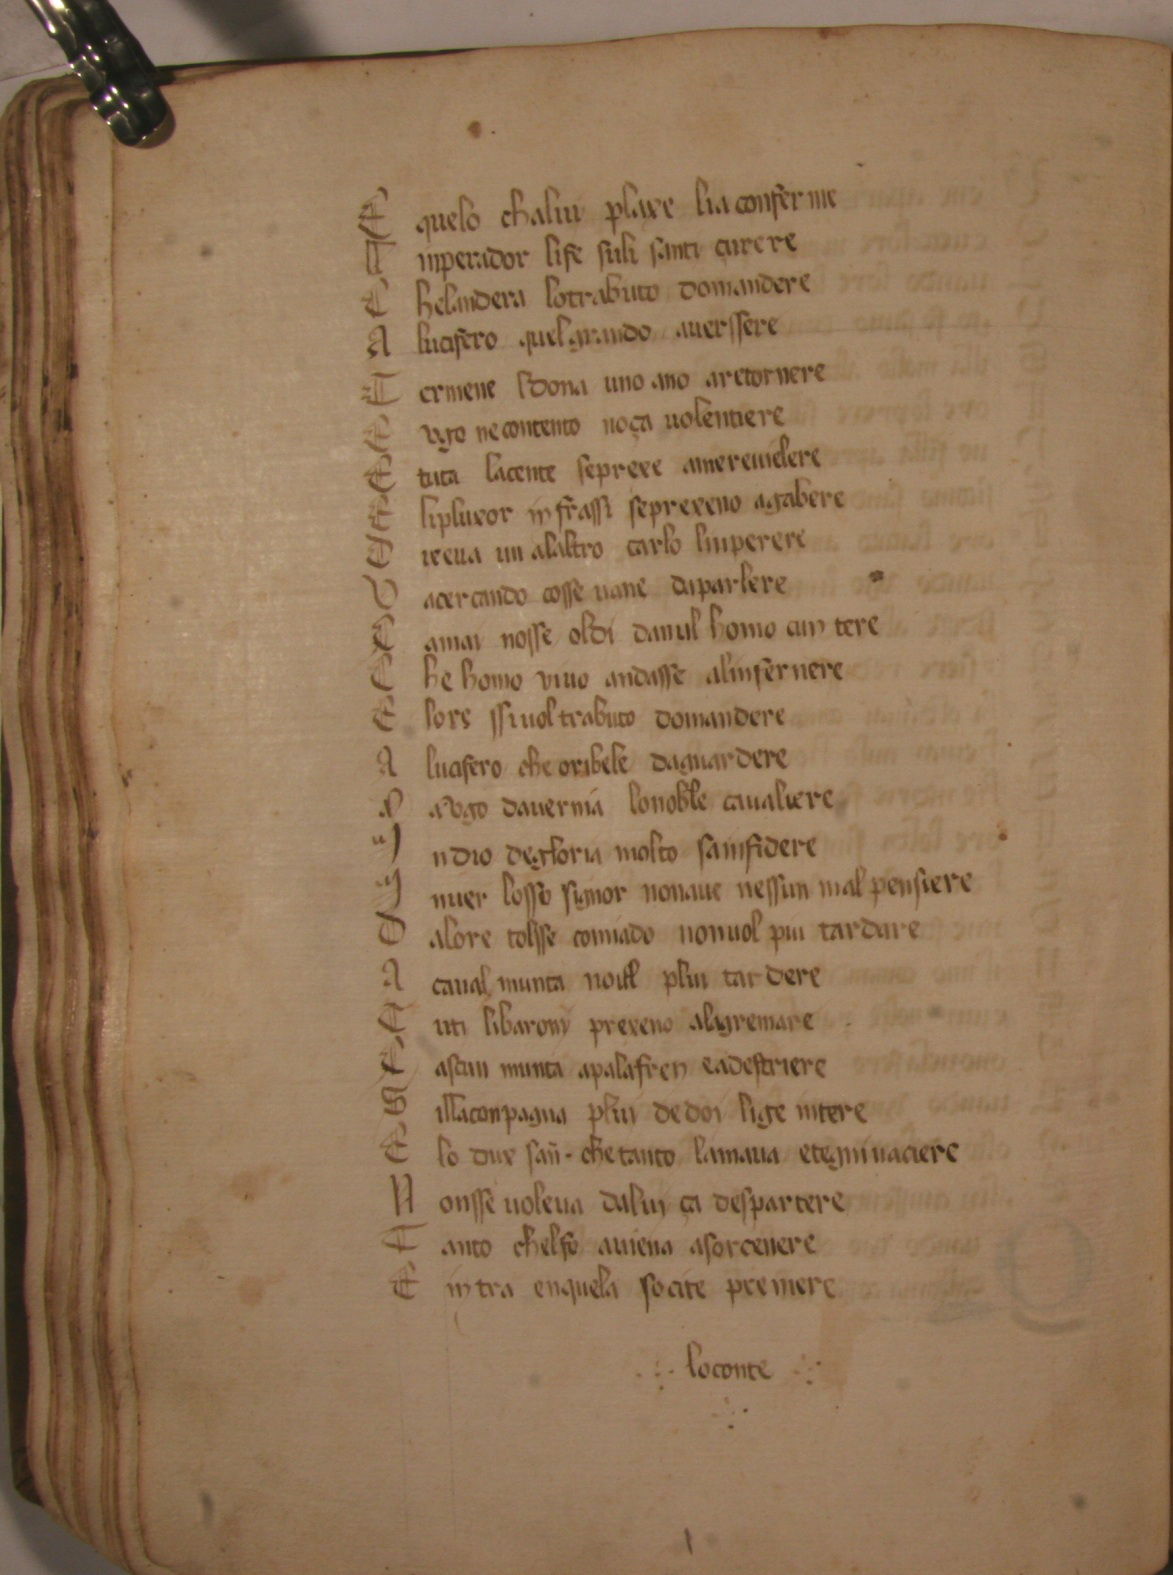 E quelo chalui plaxe lia conferme
U inperador life suli santi çurere
C helandera lotrabuto domandere
A lucifero quel grando auerssere
T ermene ldona uno ano aretornere
E vgo ne contento noça uolentiere
E tuta lacente seprexe amereuielere
E lipluxor in frassi seprexeno agabere
D ixeua un alaltro carlo linperere
V acercando cosse uane daparlere
C amai nosse oldi dauul homo cun tere
C he homo viuo andasse alinfernere
E lors ssiuol trabuto domandere
A lucifero che oribele daguardere
P avgo dauernia lonoble caualiere
I ndio degloria molto sainfidere
I nuer losso signor nonaue nessun mal pensiere
D alore tolsse comiado nonuol piu tardare
A caual munta noill pluy tardere
T uti libarony prexeno alagremare
C ascun munta apalafren eadestriere
S illaconpagna pluy de doi lige intere
E lo dux san che tanto lamaua etegniuaciere
N onsse uoleua daluy ça despartere
T anto chelfo auiena asorcenere
E intra enquela socite premere
loconte